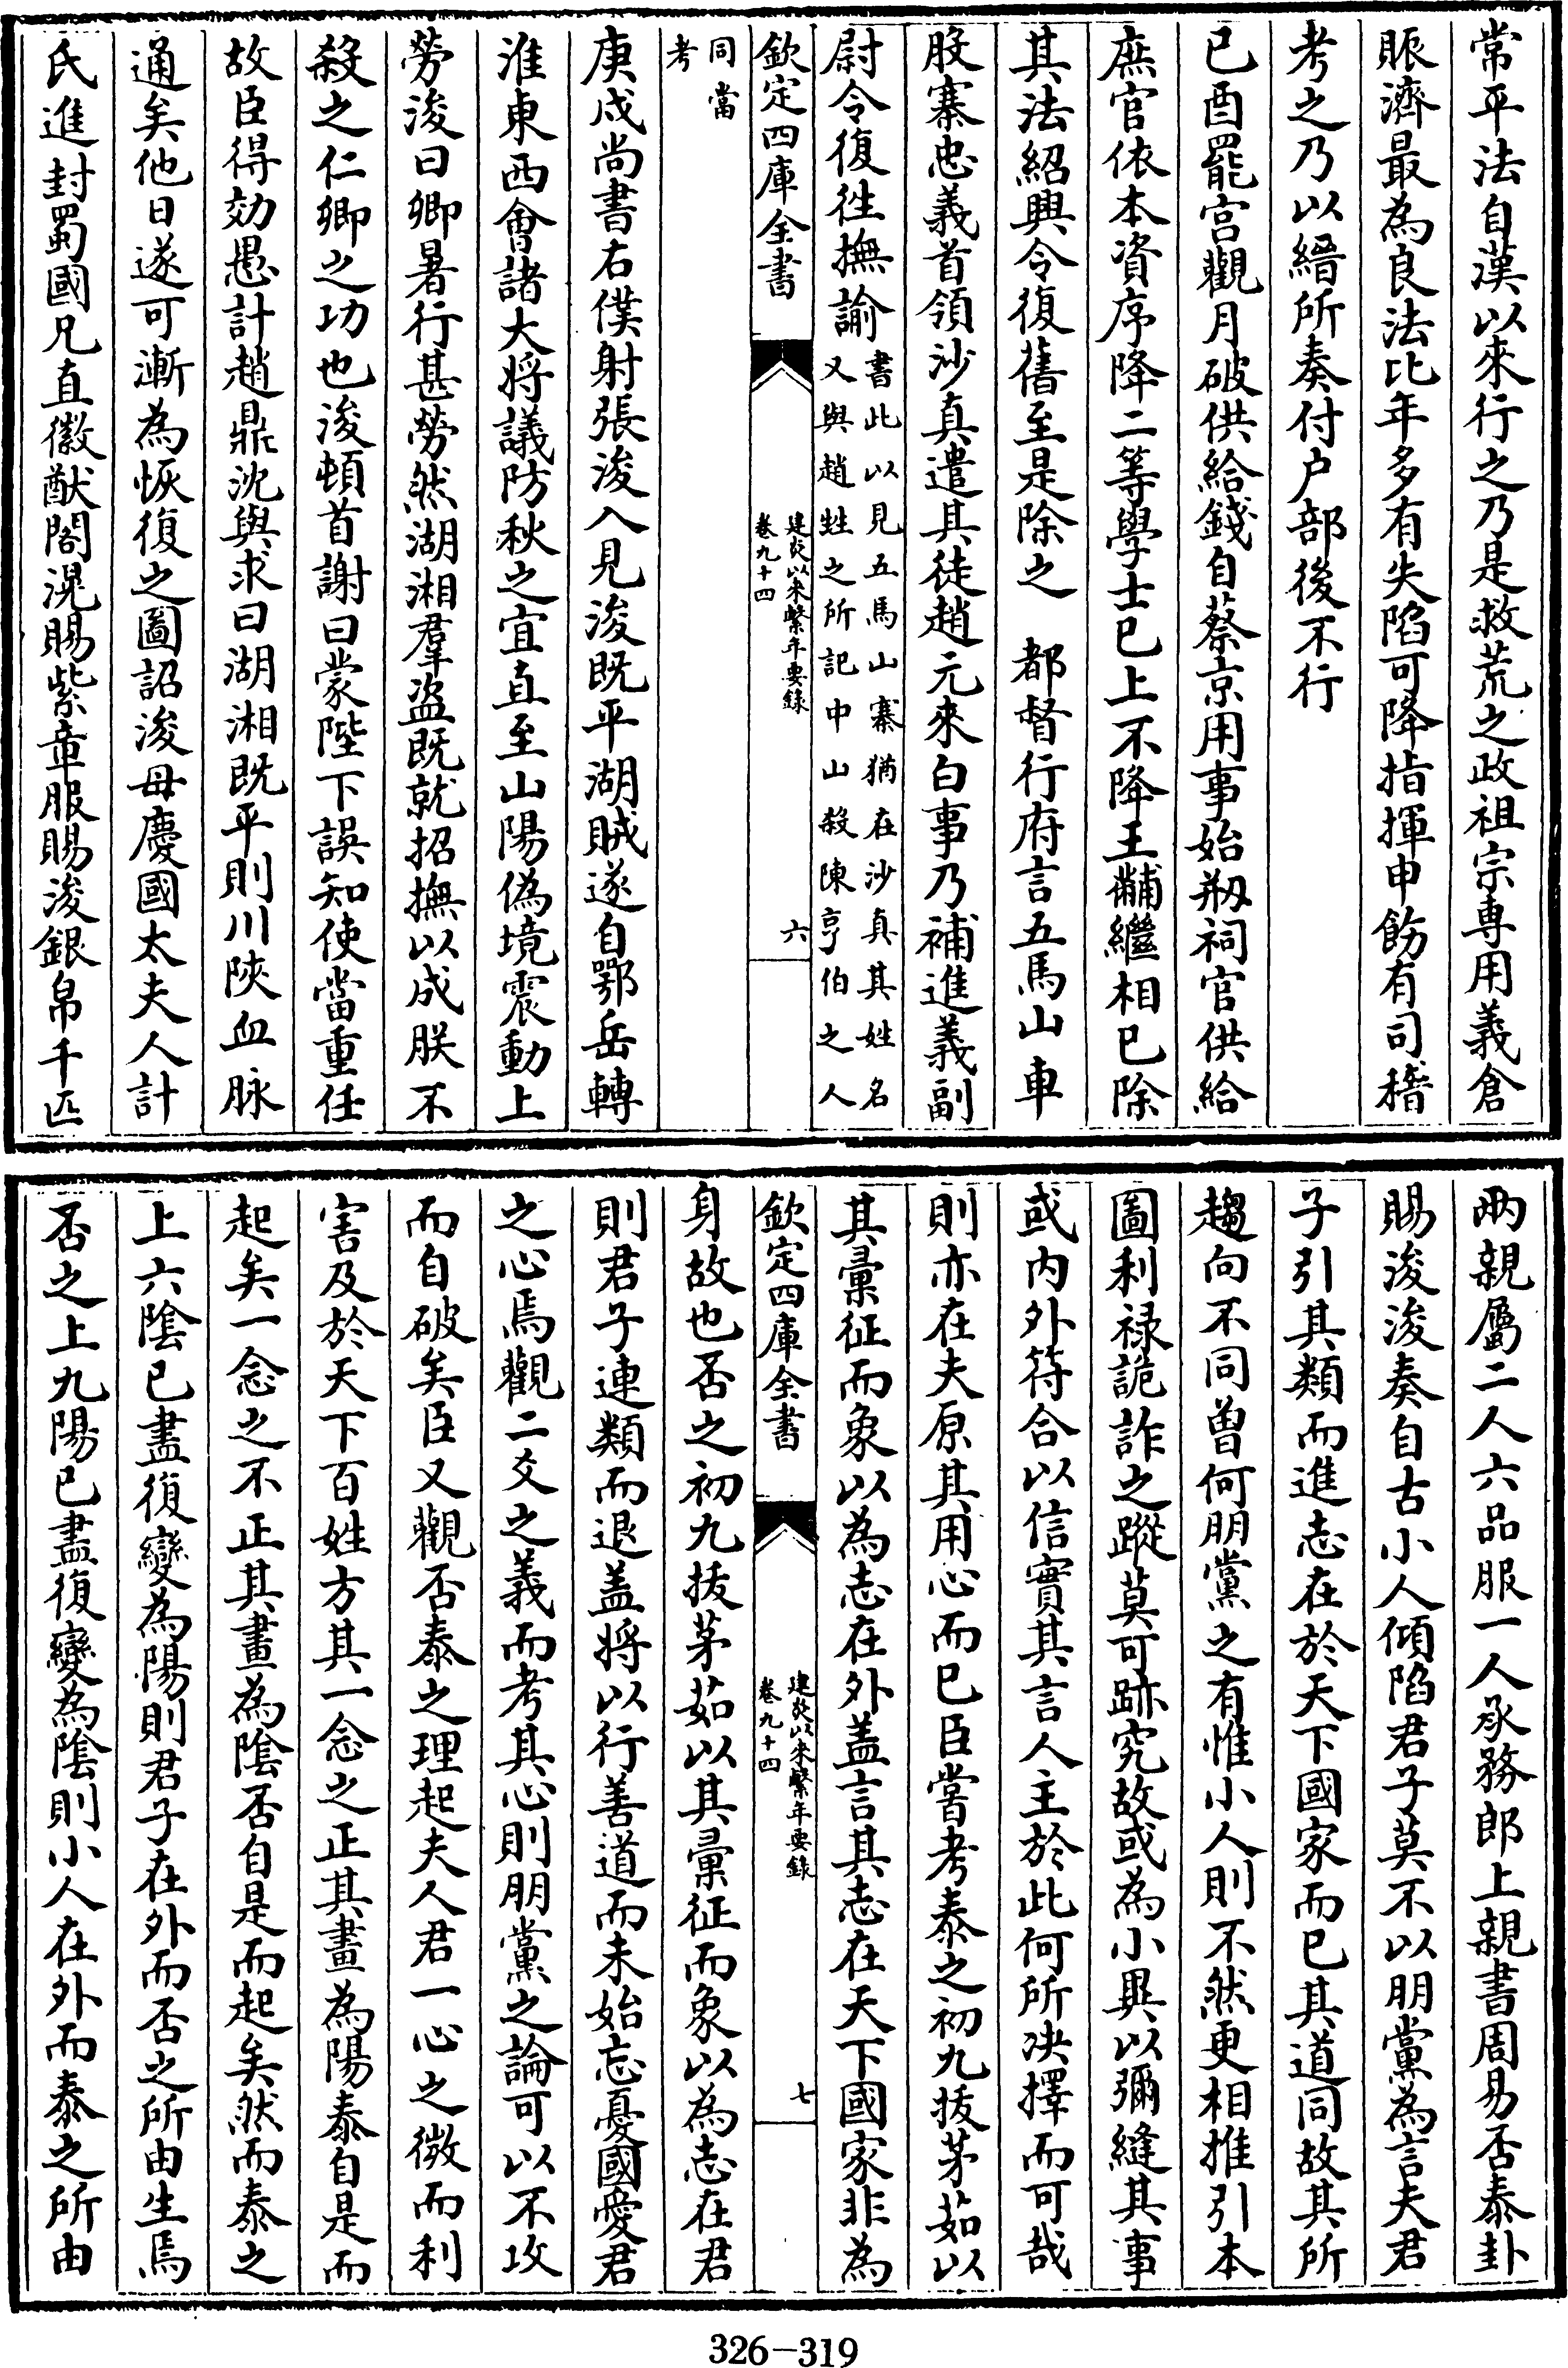 常平法自漢以來行之乃是救荒之政祖宗專用義倉
賑濟最為良法比年多有失陷可降指揮申飭有司稽
考之乃以縉所奏付户部後不行
已酉罷宫觀月破供給錢自蔡京用事始剏祠官供給
庶官依本資序降二等學士已上不降王黼繼相已除
其法紹興令復舊至是除之　都督行府言五馬山車
股寨忠義首領沙真遣其徒趙元來白事乃補進義副
尉令復徃撫諭書此以見五馬山寨猶在沙真其姓名
又與趙甡之所記中山殺陳亨伯之人
欽定四庫全書
建炎以來繫年要錄
卷九十四
六
同當
考
庚戍尚書右僕射張浚入見浚既平湖賊遂自鄂岳轉
淮東西會諸大將議防秋之宜直至山陽偽境震動上
勞浚曰卿暑行甚勞然湖湘羣盜既就招撫以成朕不
殺之仁卿之功也浚頓首謝曰蒙陛下誤知使當重任
故臣得効愚計趙鼎沈與求曰湖湘既平則川陜血脉
通矣他日遂可漸為恢復之圖詔浚母慶國太夫人計
氏進封蜀國兄直徽猷閣滉賜紫章服賜浚銀帛千匹
兩親屬二人六品服一人承務郎上親書周易否泰卦
賜浚浚奏自古小人傾陷君子莫不以朋黨為言夫君
子引其類而進志在於天下國家而已其道同故其所
趨向不同曽何朋黨之有惟小人則不然更相推引本
圖利禄詭詐之蹤莫可跡究故或為小異以彌縫其事
或内外符合以信實其言人主於此何所决擇而可哉
則亦在夫原其用心而已臣嘗考泰之初九拔茅茹以
其彚征而象以為志在外盖言其志在天下國家非為
欽定四庫全書
建炎以來繫年要錄
卷九十四
七
身故也否之初九拔茅茹以其彚征而象以為志在君
則君子連類而退盖將以行善道而未始忘憂國愛君
之心焉觀二爻之義而考其心則朋黨之論可以不攻
而自破矣臣又觀否泰之理起夫人君一心之微而利
害及於天下百姓方其一念之正其畫為陽泰自是而
起矣一念之不正其畫為陰否自是而起矣然而泰之
上六陰已盡復變為陽則君子在外而否之所由生焉
否之上九陽已盡復變為陰則小人在外而泰之所由
326-319